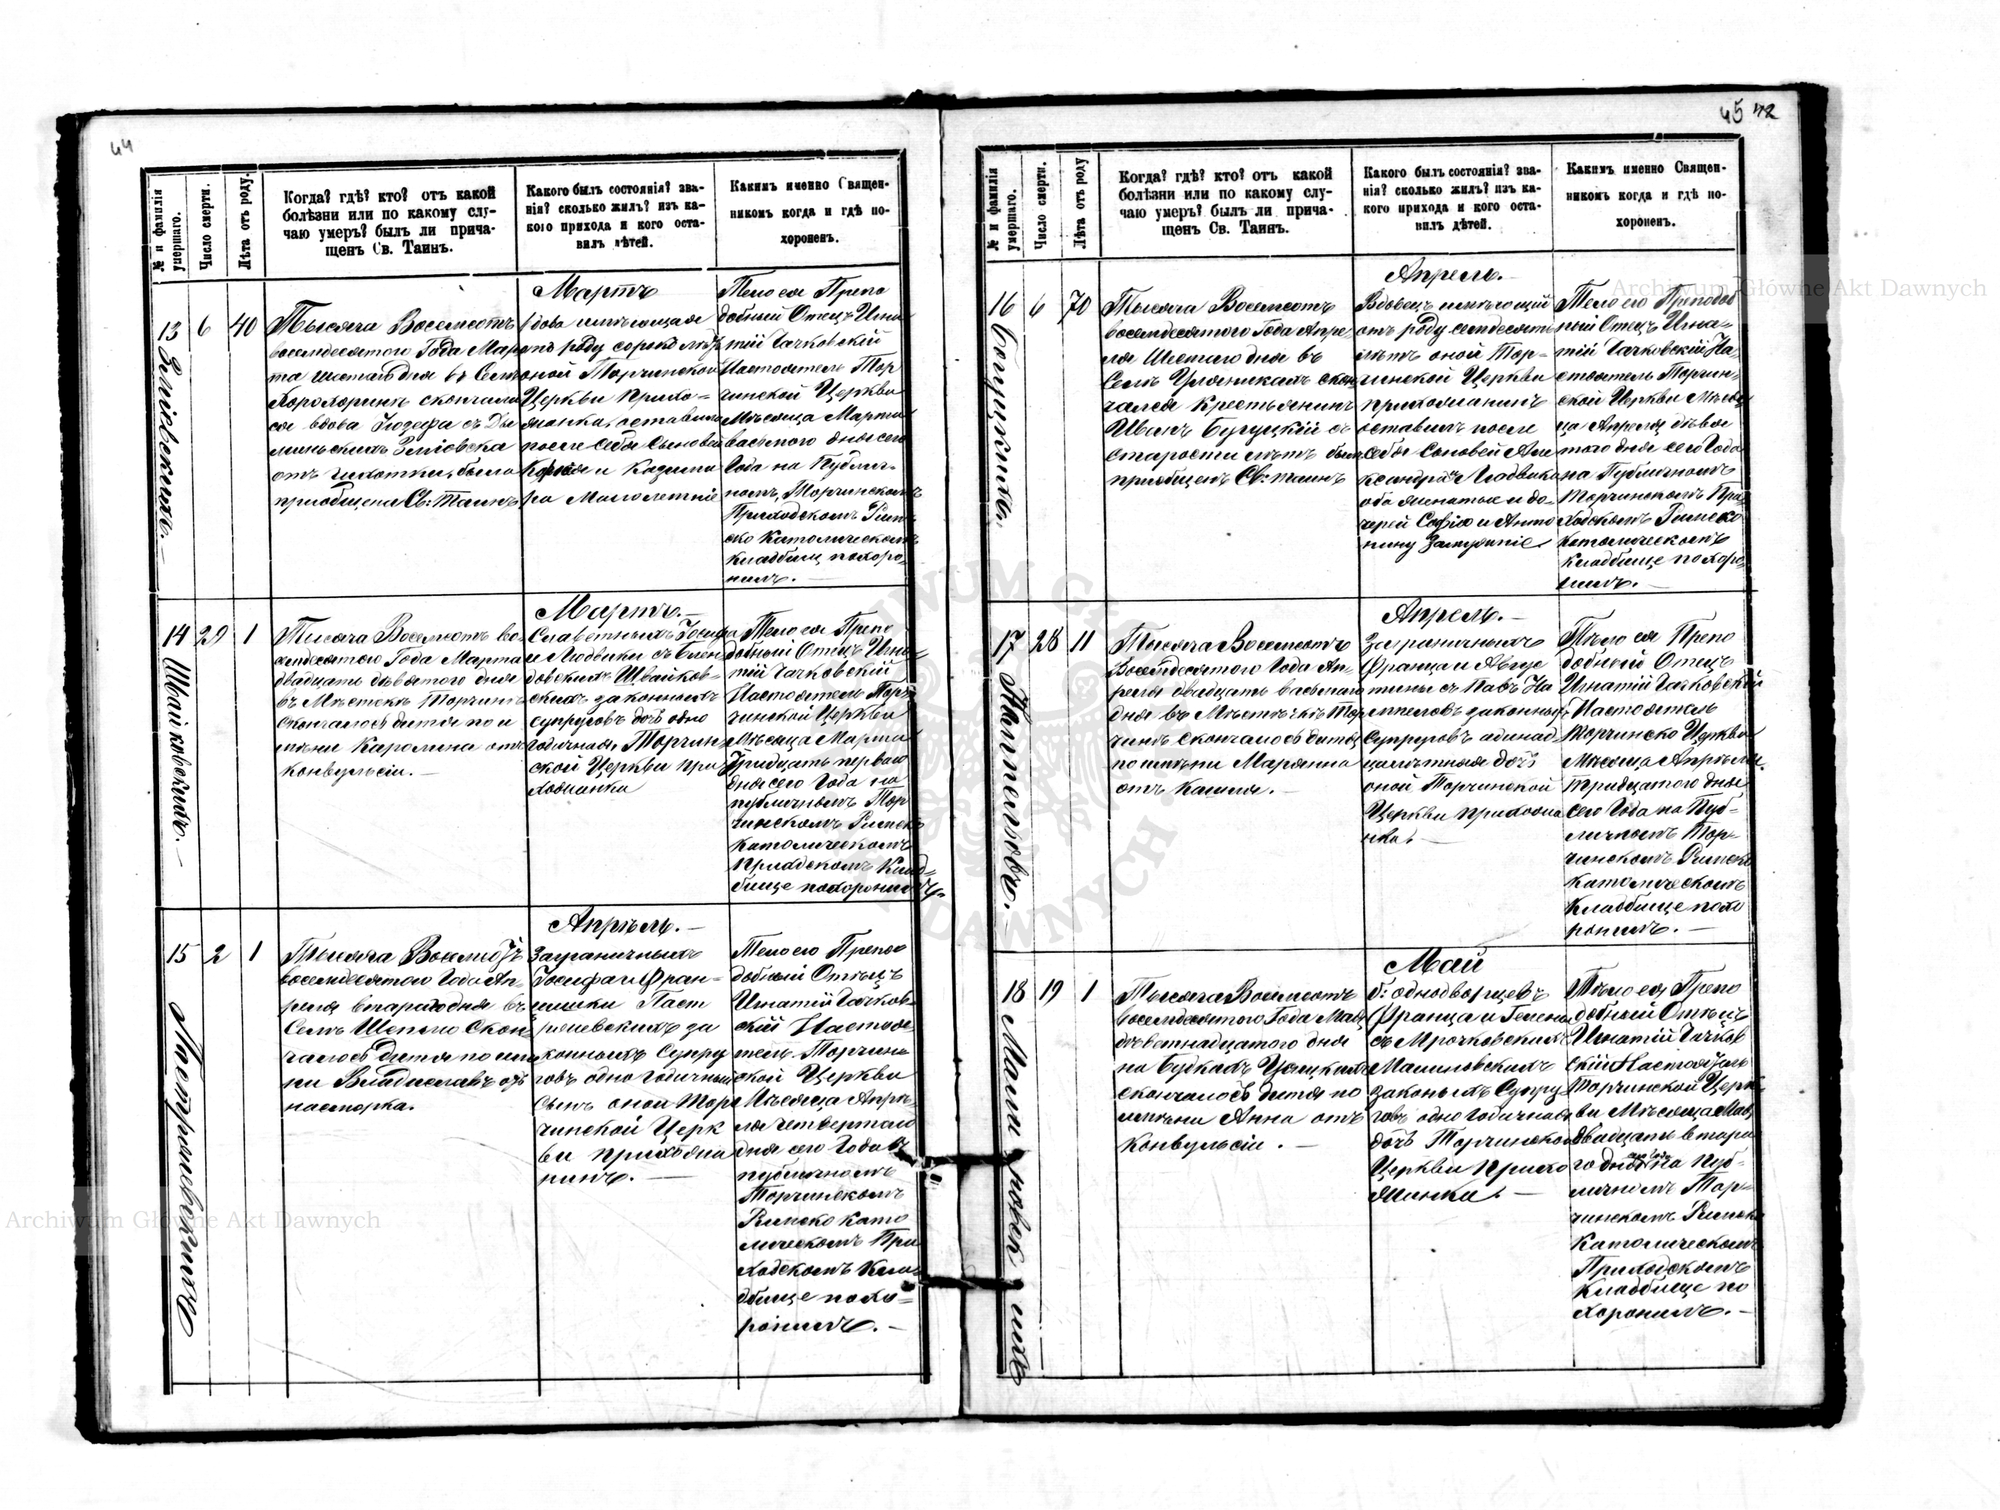 44
№ и фамилія умершаго.
Число смерти.
Лѣта отъ роду.
Когда? гдѣ? кто? отъ какой
болѣзни или по какому слу-
чаю умеръ? былъ ли прича-
щенъ Св. Таинъ.
Какого былъ состоянія? зва-
нія? сколько жилъ? изъ ка-
кого прихода и кого оста-
вилъ дѣтей.
Какимъ именно Священ-
никомъ когда и гдѣ по-
хороненъ.
13
6
40
Тысяча Восемсотъ
восемдесятого Года Мар
та шестаго дня въ Селѣ
Хорохоринѣ скончала
ся вдова Іозефа съ
отъ чихотки, была
приобщена Св: Таинъ
Мартъ
вдова имѣющая
отъ роду сорокъ лѣтъ
оной Торчинской
Церкви прихо-
жанка, оставила
после себя сыновей
и Казими
ра Малолетніе
Тело ея Препо
добный Отецъ Игна
тій Гачковскій
Настоятель Тор
чинской Церкви
Мѣсяца Марта
васмого дня сего
Года на Публич-
номъ, Торчинскомъ
Приходскомъ Рим
ско Католическомъ
кладбищѣ похоро-
нилъ. —
14
29
1
Тисяча Восемсотъ во-
семдесятого Года Марта
двадцать девятого дня
въ Мѣстечкѣ Торчинѣ
скончалось дитя по и
мѣни Каролина отъ
конвульсіи. —
Мартъ. —
Славетныхъ Іосифа
и Людвики съ
Швайков-
скихъ законныхъ
супруговъ дочь одно
годичная, Торчин
ской Церкви при
хожанка
Тело ея Препо
добный Отецъ Игна
тій Гачковскій
Настоятель Тор
чинской Церкви
Мѣсяца Марта
Тридцать перваго
дня сего Года на
публичномъ Тор
чинскомъ Римско
католическомъ
приходскомъ Клад-
бище похоронилъ. —
15
2
1
Тысяча Восемсотъ
восемдесятого Года Ап-
реля втараго дня въ
Селѣ Шепелю Скон-
чалось дитя по име
ни Владиславъ отъ
насморка.
Апрѣль. —
Заграничныхъ
Іосифа и Фран-
цишки Паст
решевскихъ за
конныхъ Супру
говъ одно годичный
Сынъ оной Тор
чинской Церк
ви прихожа
нинъ. —
Тело его Препо
добный Отѣцъ
Игнатій Гачков-
скій Настоя-
тель Торчин-
ской Церкви
Мѣсяца Апрѣ-
ля четвертаго
дня сего Года въ
публичномъ
Торчинскомъ
Римско като
лическомъ При
ходскомъ Кла-
дбище похо-
ронилъ. —
45 42
№ и фамилія умершаго.
Число смерти.
Лѣта отъ роду
Когда? гдѣ? кто? отъ какой
болѣзни или по какому слу-
чаю умеръ? былъ ли прича-
щенъ Св. Таинъ.
Какого былъ состоянія? зва-
нія? сколько жилъ? изъ ка-
кого прихода и кого оста-
вилъ дѣтей.
Какимъ именно Священ-
никомъ когда и гдѣ по-
хороненъ.
16
6
70
Тысяча Восемсотъ
восемдесятого Года Апре-
ля Шестаго дня въ
Селѣ Уляникахъ скон
чался Крестьянинъ
Иванъ Бугуцкій съ
старости лѣтъ былъ
приобщенъ Св: таинъ
Апрель. —
Вдовецъ имѣющій
отъ роду семдесятъ
лѣтъ оной Тор-
чинской Церкви
прихожанинъ
оставилъ после
себя Сыновей Але
ксандра и Людвика
оба женатые и до-
черей Софію и Анто
нину Замужніе
Тело его Преподоб
ный Отецъ Игна-
тій Гачковскій На-
стоятель Торчин-
ской Церкви Мѣся
ца Апреля девя
того дня сего Года
на Публичномъ
Торчинскомъ При
ходскомъ Римско
католическомъ
Кладбище похоро
нилъ. —
17
28
11
Каппелловъ. —
Тысяча Восемсотъ
Восемдесятого Года Ап-
реля двадцать васмаго
дня въ Мѣстечкѣ Тор
чинѣ скончалось дитя
по имѣни Марянна
отъ Кашля. —
Апрель. —
Заграничныхъ
Франца и Авгус
тины съ
законныхъ
Супруговъ адинад-
цалѣтная дочь
оной Торчинской
Церкви прихожа
нка. —
Тѣло ея Препо
добный Отецъ
Игнатій Гачковскій
Настоятель
Торчинско Церкви
Мѣсяца Апрѣля
тридцатого дня
сего Года на Пуб-
личномъ Тор-
чинскомъ Римско
католическомъ
Кладбище похо
ронилъ. —
18
19
1
Тысяча Восемсотъ
восемдесятого Года Мая
девятнадцатого дня
на Будкахъ Усицкихъ
скончалось дитя по
имѣни Анна отъ
конвульсіи. —
Май
б: однодворцевъ
Франца и Гелены
съ Мрочковскихъ
Малиновскихъ
законыхъ Супру
говъ одно годичная
дочь Торчинской
Церкви прихо
жанка. —
Тѣло ея Препо
добный Отѣцъ
Игнатій Гачков
скій Настоятель
Торчинской Церк
ви Мѣсяца Мая
двадцать втара
го дня сего Года на Пуб-
личномъ Тор-
чинскомъ Римско
Католическомъ
Приходскомъ
Кладбище по
хоронилъ. —
Archiwum Główne Akt Dawnych
Archiwum Główne Akt Dawnych